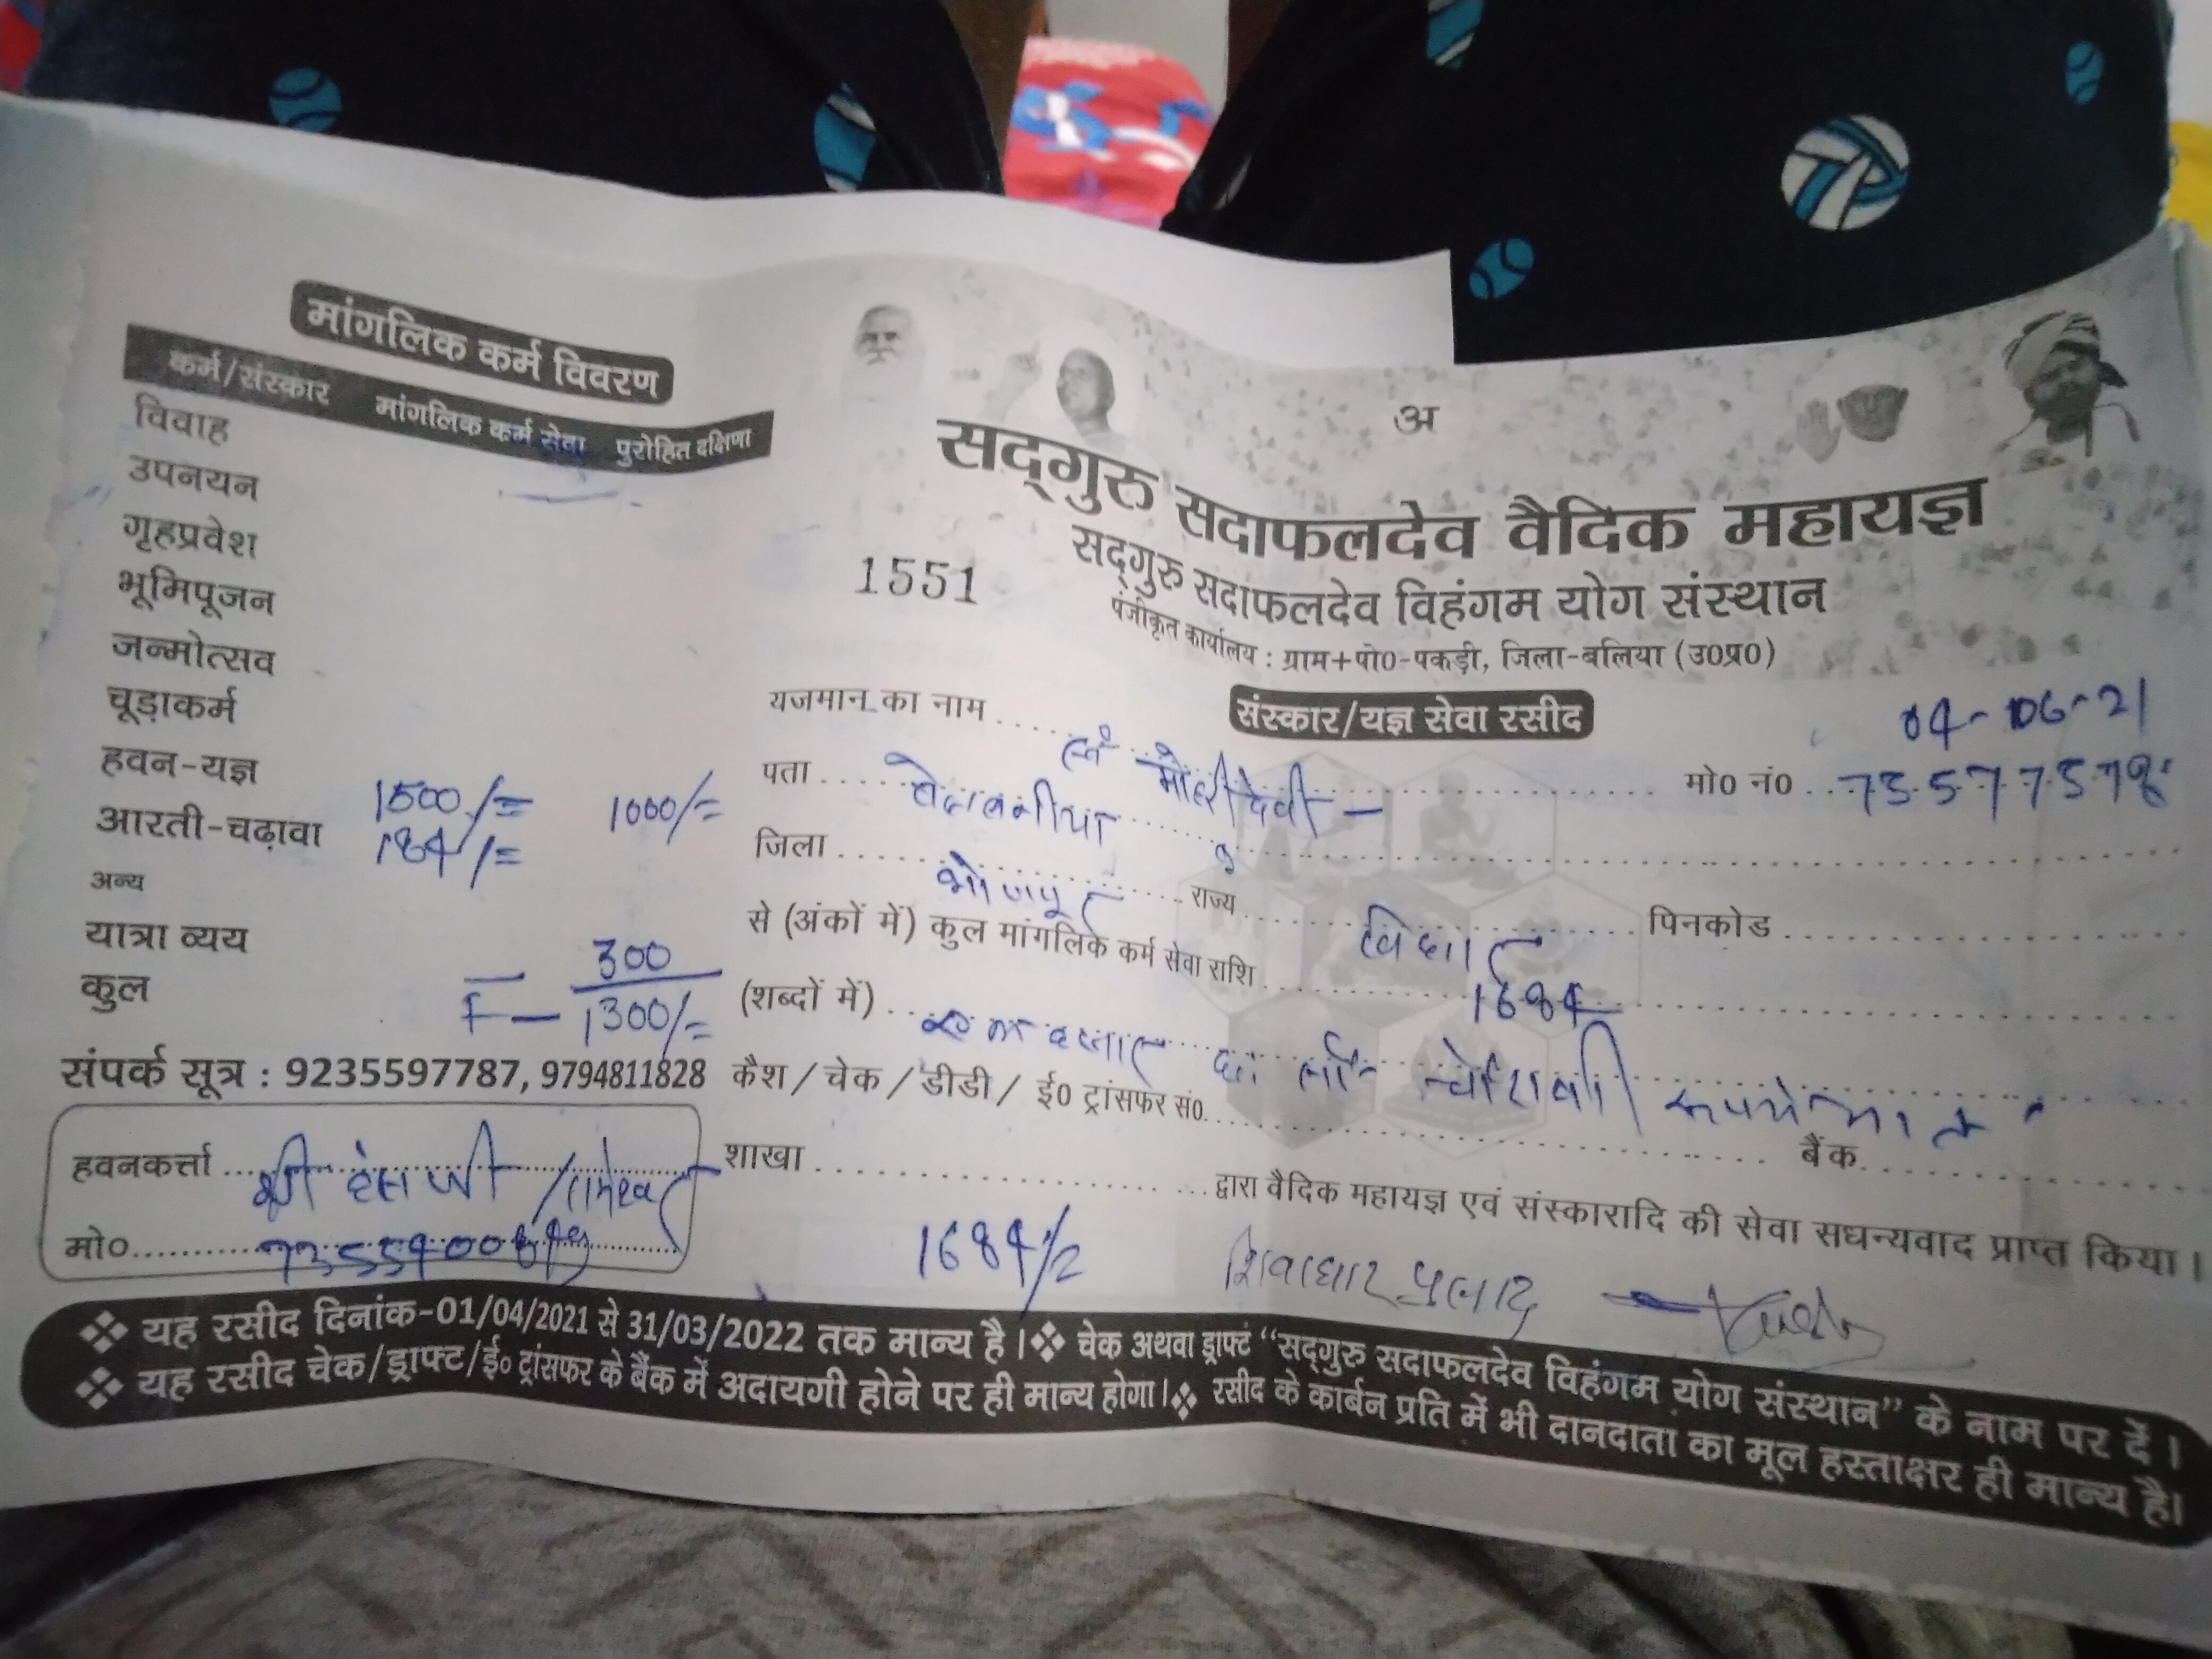 मांगलिक कर्म विवरण
कर्म/संस्कार मांगलिक कर्म सेवा पुरोहित दक्षिणा
विवाह
उपनयन
गृहप्रवेश
भूमिपूजन
जन्मोत्सव
चूड़ाकर्म
हवन-यज्ञ 1500/= 1000/=
आरती-चढ़ावा 184/=
अन्य
यात्रा व्यय 300
कुल 1300/=
संपर्क सूत्र : 9235597787, 9794811828
हवनकर्त्ता श्री हंस जी /रामेश्वर
मो०
अ
सद्गुरु सदाफलदेव वैदिक महायज्ञ
सद्गुरु सदाफलदेव विहंगम योग संस्थान
1551
पंजीकृत कार्यालय : ग्राम+पो०-पकड़ी, जिला-बलिया (उ०प्र०)
संस्कार/यज्ञ सेवा रसीद
04-06-21
यजमान का नाम देवी मो० नं०
पता
जिला भोजपुर राज्य बिहार पिनकोड
से (अंकों में) कुल मांगलिक कर्म सेवा राशि 1684
(शब्दों में) एक हजार छः सौ चौरासी रूपये मात्र
कैश / चेक / डीडी / ई० ट्रांसफर सं०. बैंक
शाखा द्वारा वैदिक महायज्ञ एवं संस्कारादि की सेवा सधन्यवाद प्राप्त किया।
1684/= शिवाधार प्रसाद
❖ यह रसीद दिनांक-01/04/2021 से 31/03/2022 तक मान्य है।❖ चेक अथवा ड्राफ्ट “सद्गुरु सदाफलदेव विहंगम योग संस्थान” के नाम पर दें।
❖ यह रसीद चेक/ड्राफ्ट/ई० ट्रांसफर के बैंक में अदायगी होने पर ही मान्य होगा।❖ रसीद के कार्बन प्रति में भी दानदाता का मूल हस्ताक्षर ही मान्य है।